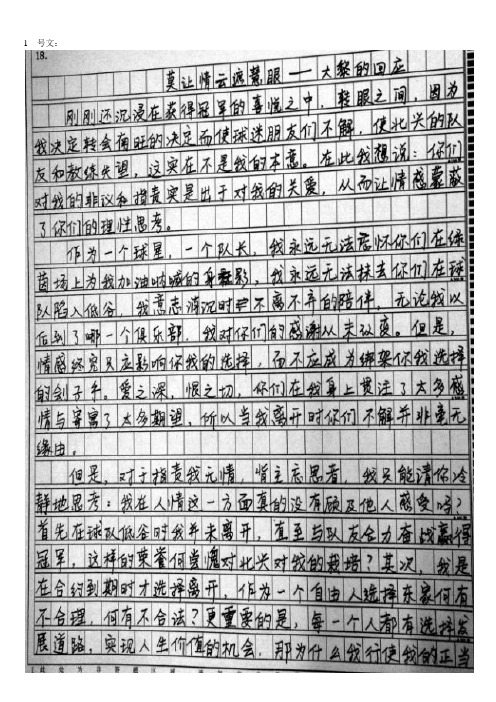 1 号文:
18.
莫让情云遮慧眼——大黎的回应
刚刚还沉浸在获得冠军的喜悦之中,转眼之间,因为
我决定转会南旺的决定而使球迷朋友们不解,使北兴的队
友和教练失望,这实在不是我的本意。在此我想说:你们
对我的非议和指责实是出于对我的关爱,从而让情感蒙蔽
了你们的理性思考。
作为一个球星,一个队长,我永远无法忘怀你们在绿
茵场上为我加油呐喊的身影,我永远无法抹去你们在球
队陷入低谷,我意志消沉时不离不弃的陪伴,无论我以
后到了哪一个俱乐部,我对你们的感谢从未改变。但是,
情感终究只应影响你我的选择,而不应成为绑架你我选择
的刽子手。爱之深,恨之切,你们在我身上贯注了太多感
情与寄寓了太多期望,所以当我离开时你们不解并非毫无
缘由。
但是,对于指责我无情,背主忘恩者,我只能请你冷
静地思考:我在人情这一方面真的没有顾及他人感受吗?
首先在球队低谷时我并未离开,直至与队友合力奋战赢得
冠军,这样的荣誉何尝愧对北兴对我的栽培?其次,我是
在合约到期时才选择离开,作为一个自由人选择东家何有
不合理,何有不合法?更重要的是,每一个人都有选择发
展道路,实现人生价值的机会,那为什么我行使我的正当